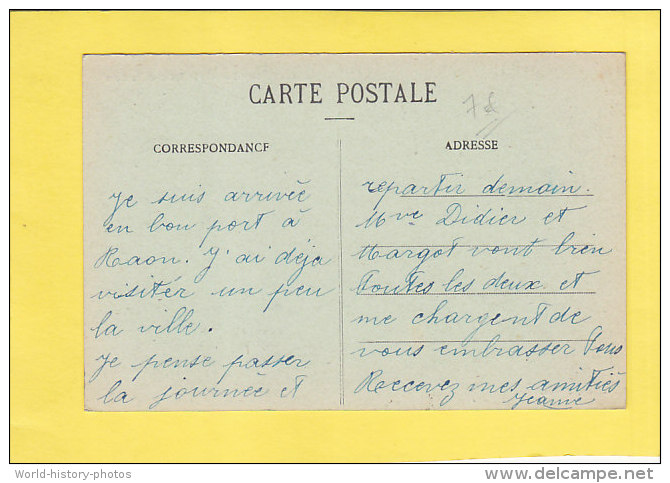 CARTE POSTALE
CORRESPONDANCE
Je suis arrivée
en bon port à
Raon. J'ai déja
visitér un peu
la ville.
Je pense passer
la journée et
ADRESSE
repartir demain.
Mve Didier et
Margot vont bien
Toutes les deux et
me chargent de
vous embrasser Tous
Recevez mes amitiés
Jeanne
World-history-photos
delcampe.net